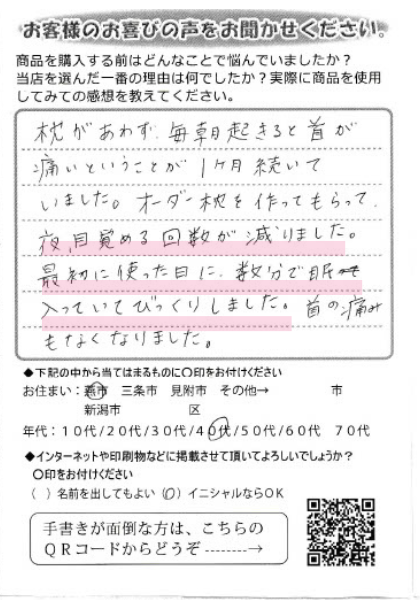 お客様のお喜びの声をお聞かせください。
商品を購入する前はどんなことで悩んでいましたか？
当店を選んだ一番の理由は何でしたか？実際に商品を使用
してみての感想を教えてください。
枕があわず、毎朝起きると首が
痛いということが1ヶ月続いて
いました。オーダー枕を作ってもらって、
夜、目覚める回数が減りました。
最初に使った日に、数分で眠
入っていてびっくりしました。首の痛み
もなくなりました。
◆下記の中から当てはまるものに〇印をお付けください
お住まい：燕市 三条市 見附市 その他→ 市
新潟市 区
年代：１０代/２０代/３０代/４０代/５０代/６０代 ７０代
◆インターネットや印刷物などに掲載させて頂いてよろしいでしょうか？
〇印をお付けください
（ ）名前を出してもよい（〇）イニシャルならＯＫ
手書きが面倒な方は、こちらの
ＱＲコードからどうぞ --------→